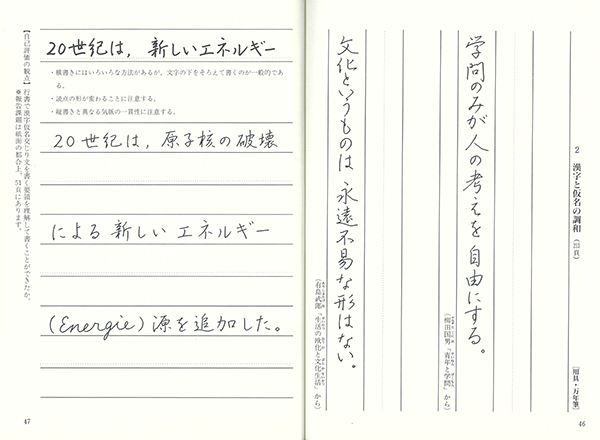 2 漢字と仮名の調和
［用具・万年筆］
学問のみが人の考えを自由にする。
（柳田国男「青年と学問」から）
文化というものは永遠不易な形はない。
（有島武郎「生活の欧化と文化生活」から）
46
20世紀は，新しいエネルギー
・横書きにはいろいろな方法があるが，文字の下をそろえて書くのが一般的であ
る。
・読点の形が変わることに注意する。
・縦書きと異なる気脈の一貫性に注意する。
20世紀は，原子核の破壊
による新しいエネルギー
(Energie)源を追加した。
【自己評価の観点】行書で漢字仮名交じり文を書く要領を理解して書くことができたか。
※報告課題は紙面の都合上，51頁にあります。
47